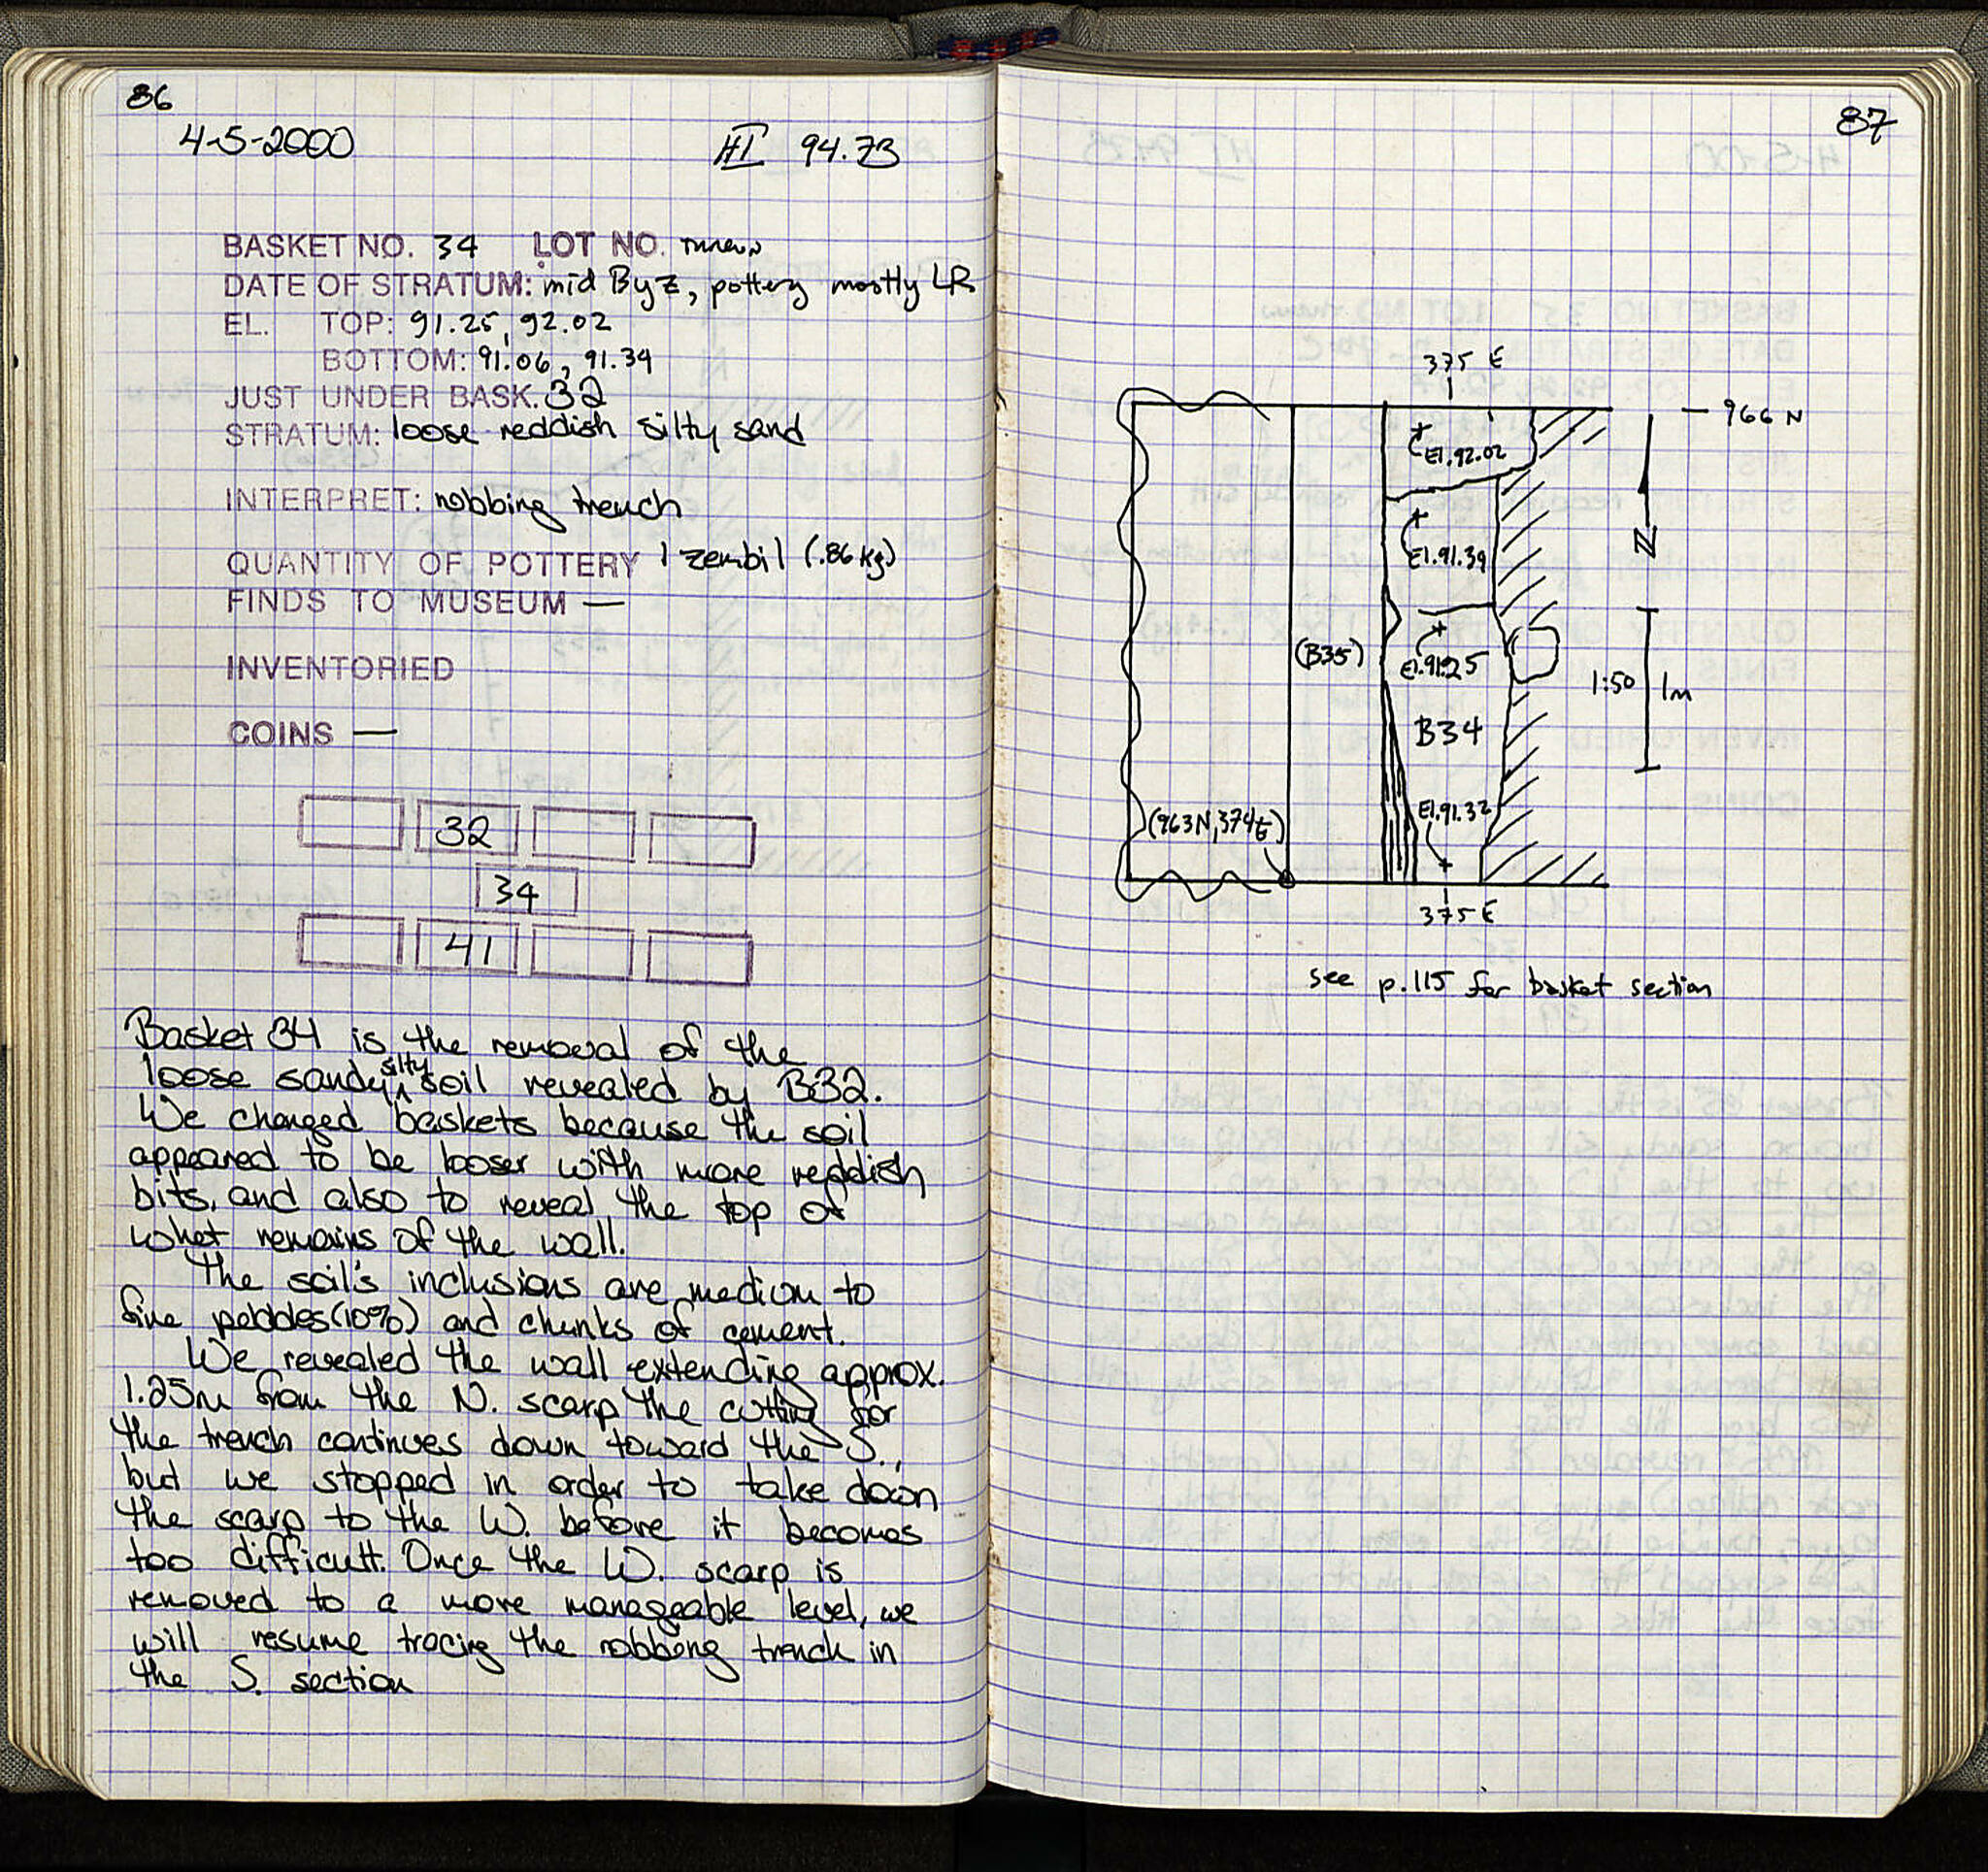 86
4-5-2000 HI 94.73
BASKET NO. 34 LOT NO.
DATE OF STRATUM: mid Byz, pottery mostly LR
EL. TOP: 91.25, 92.02
BOTTOM: 91.06, 91.34
JUST UNDER BASK. 32
STRATUM: loose reddish silty sand
INTERPRET: robbing trench
QUANTITY OF POTTERY 1 zembil (.86 kg)
FINDS TO MUSEUM —
INVENTORIED
COINS —
32
34
41
Basket 34 is the removal of the
loose sandy silty soil revealed by B32.
We changed baskets because the soil
appeared to be looser with more reddish
bits, and also to reveal the top of
what remains of the wall.
The soil's inclusions are medium to
fine pebbles (10%) and chunks of cement.
We revealed the wall extending approx.
1.25m from the N. scarp the cutting for
the trench continues down toward the S.,
but we stopped in order to take down
the scarp to the W. before it becomes
too difficult. Once the W. scarp is
removed to a more manageable level, we
will resume tracing the robbing trench in
the S. section
87
375 E
966 N
El. 92.02
El. 91.39
N
(B35)
El. 91.25
1:50 1m
B34
El. 91.32
(963N, 374E)
375 E
see p. 115 for basket section